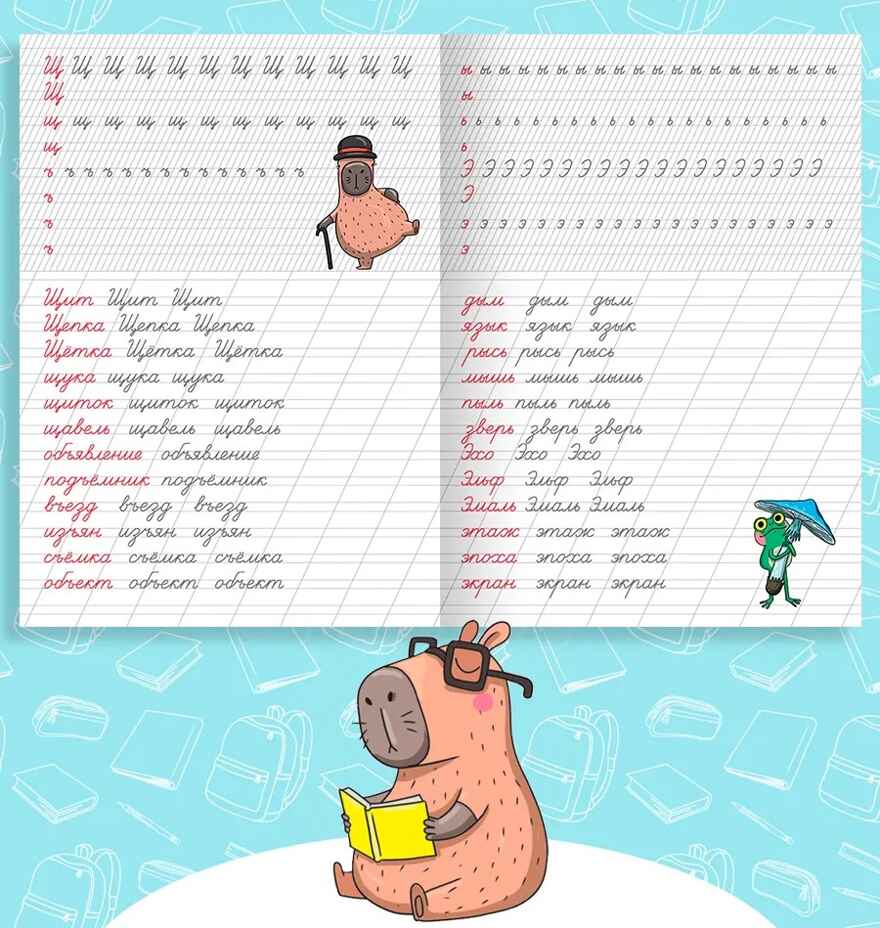 Щ Щ Щ Щ Щ Щ Щ Щ Щ Щ Щ Щ
Щ
щ щ щ щ щ щ щ щ щ щ щ щ
щ
ъ ъ ъ ъ ъ ъ ъ ъ ъ ъ ъ ъ ъ ъ
ъ
ъ
ъ
Щит Щит Щит
Щепка Щепка Щепка
Щётка Щётка Щётка
щука щука щука
щиток щиток щиток
щавель щавель щавель
объявление объявление
подъёмник подъёмник
въезд въезд въезд
изъян изъян изъян
съёмка съёмка съёмка
объект объект объект
ы ы ы ы ы ы ы ы ы ы ы ы ы ы ы ы ы ы ы ы
ы
ь ь ь ь ь ь ь ь ь ь ь ь ь ь ь ь ь ь ь ь
ь
Э Э Э Э Э Э Э Э Э Э Э Э Э Э Э Э Э Э Э
Э
э э э э э э э э э э э э э э э э э э э э
э
дым дым дым
язык язык язык
рысь рысь рысь
мышь мышь мышь
пыль пыль пыль
зверь зверь зверь
Эхо Эхо Эхо
Эльф Эльф Эльф
Эмаль Эмаль Эмаль
этаж этаж этаж
эпоха эпоха эпоха
экран экран экран